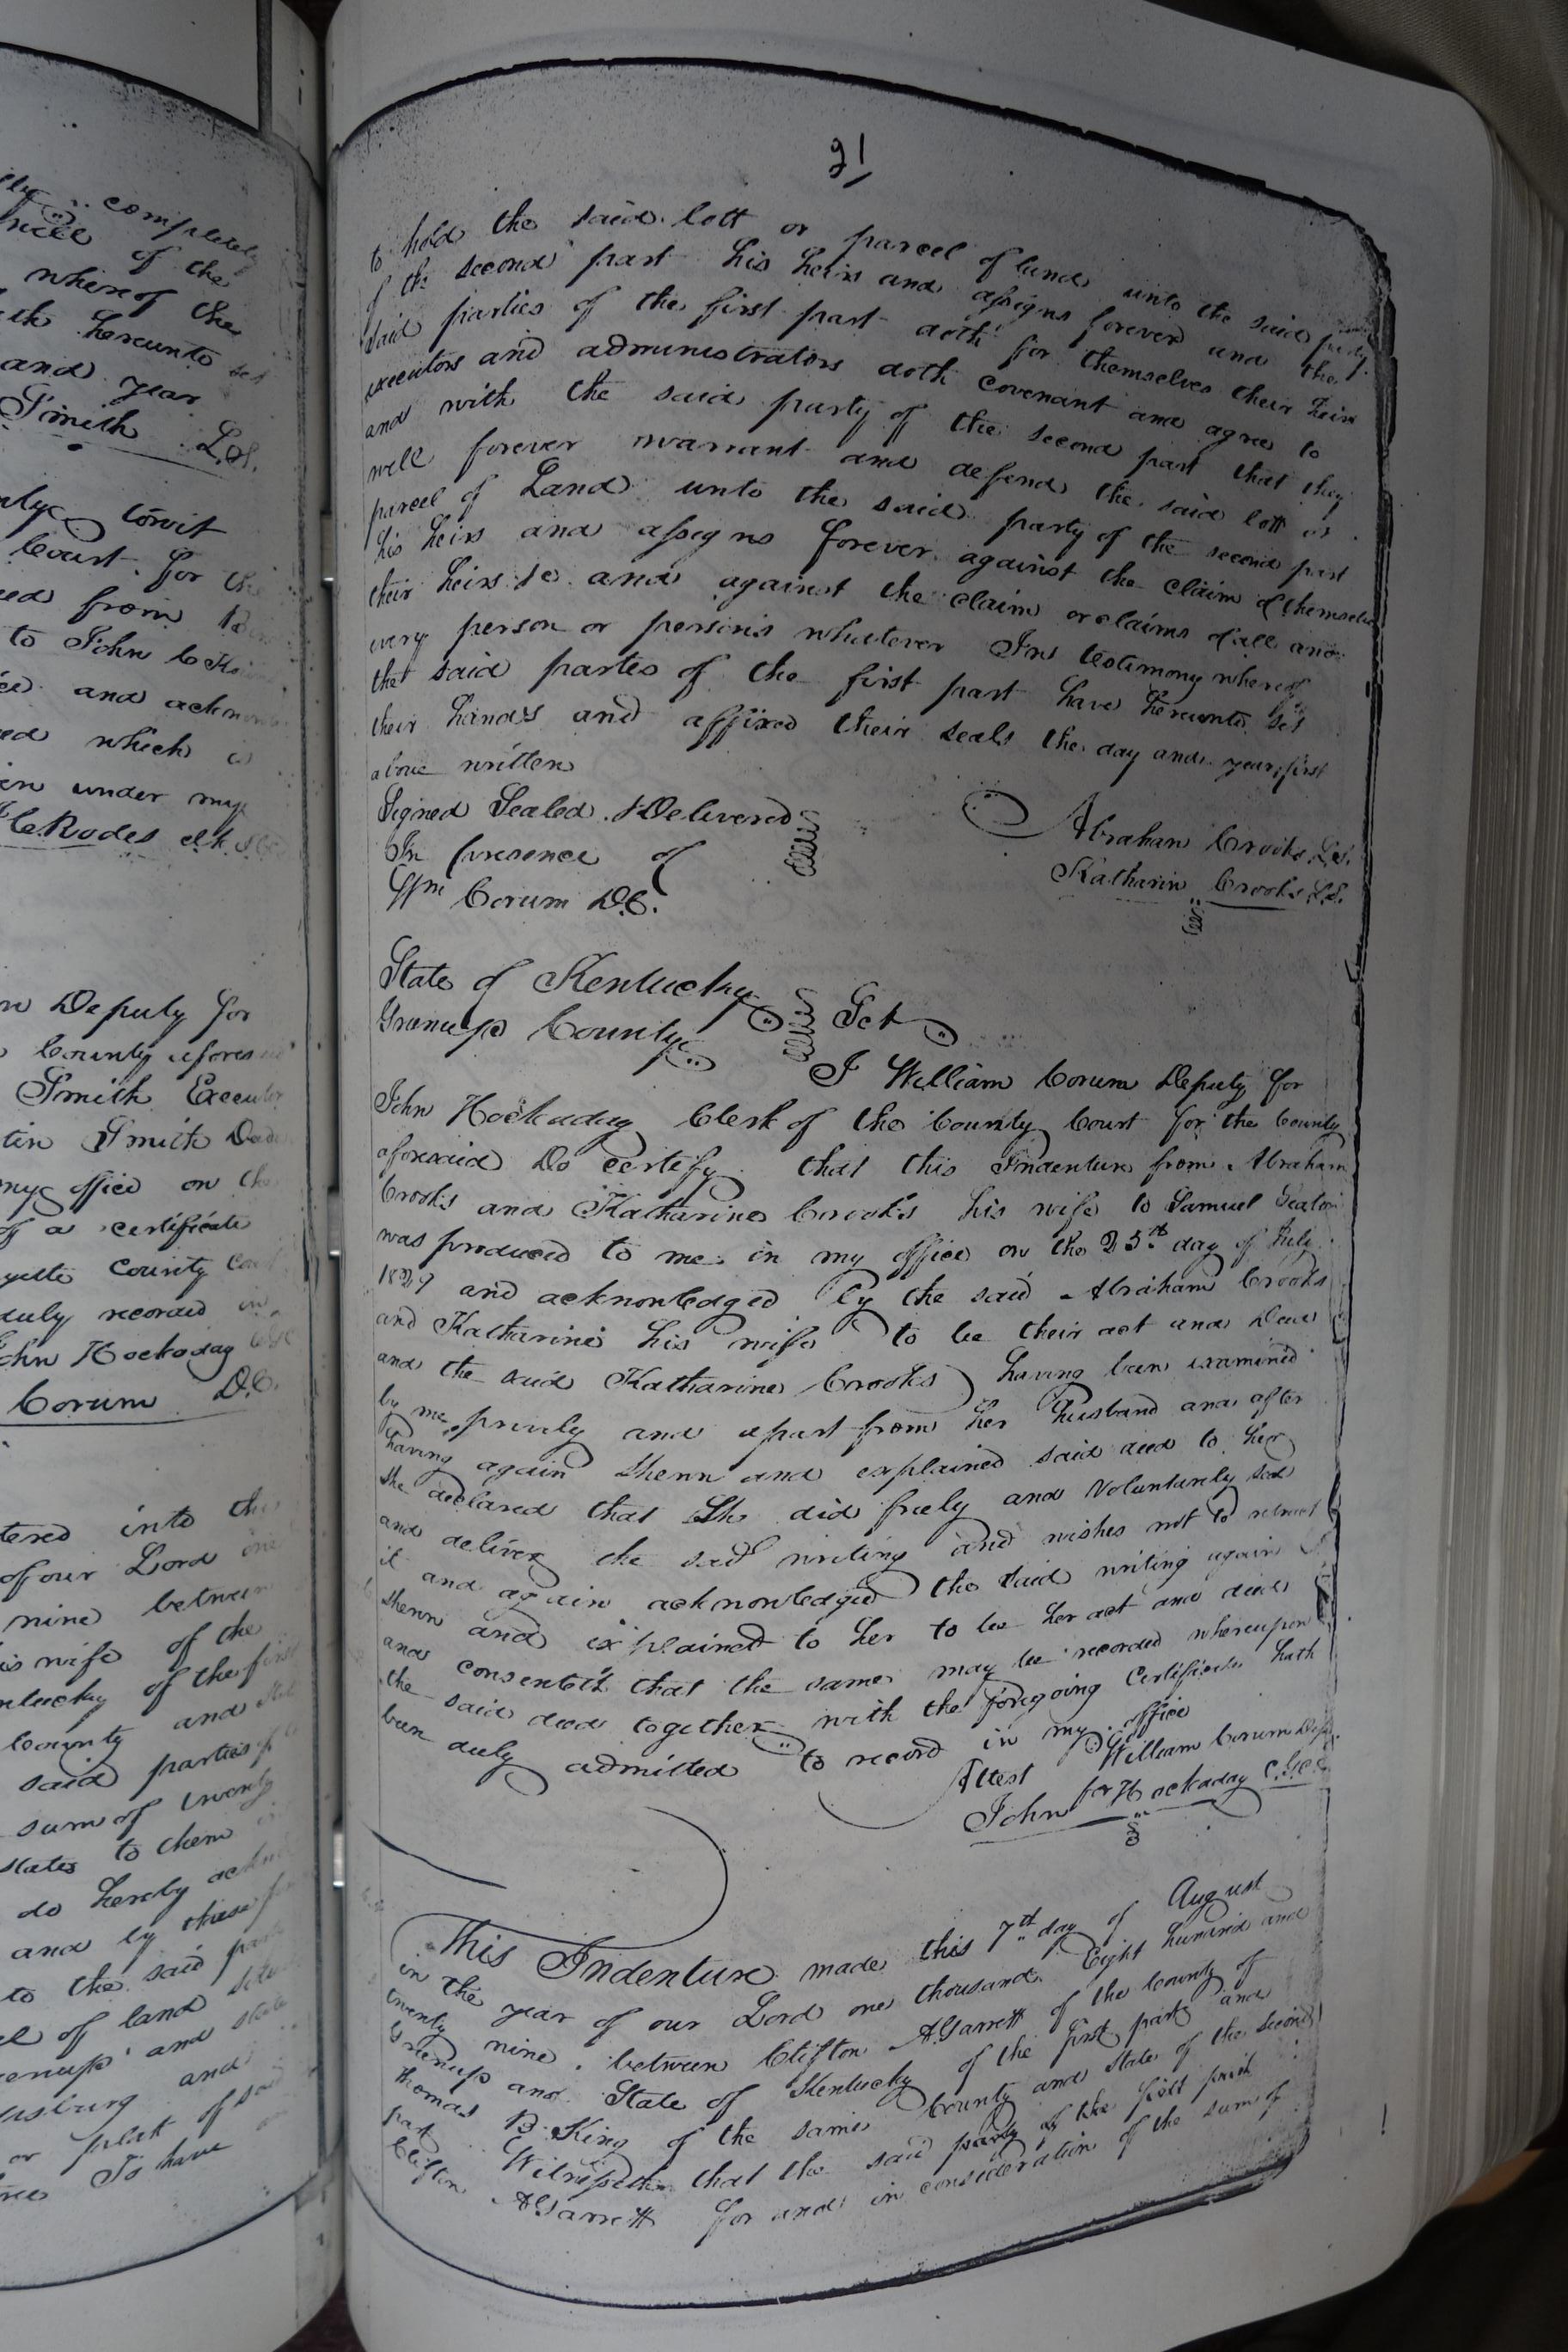 completely
of the
whereof the
hereunto set
and year
Smith L.S.
towit
Court for the
from
to John C
and acknow
which is
under my
Rodes clk
Deputy for
County afores
Smith Executor
tin Smith Dec
my office on the
of a certificate
yette County Cou
duly recorded in
John Hockaday
Corum D.C.
tered into this
of our Lord one
nine between
his wife of the
ntucky of the first
County and
said parties
sum of twenty
states to them
do hereby ackn
and by these
to the said part
of land
eenup and state
usburg and
or plat of said
To have
21
to hold the said lott or parcel of land unto the said party
of the second part his heirs and assigns forever and the
said parties of the first part doth for themselves their heirs
executors and administrators doth covenant and agree to
and with the said party of the second part that they
will forever warrant and defend the said lott or
parcel of Land unto the said party of the second part
his heirs and assigns forever against the claim of themselves
their heirs &c and against the claim or claims of all and
every person or persons whatever In testimony whereof
the said parties of the first part have hereunto set
their hands and affixed their seals the day and year first
above written
Signed Sealed & Delivered
In presence of
Wm Corum D.C.
Abraham Crooks L.S.
Katharin Crooks L.S.
State of Kentucky
Greenup County Sct
I William Corum Deputy for
John Hockaday Clerk of the County Court for the County
aforesaid Do certify that this Indenture from Abraham
Crooks and Katharine Crooks his wife to Samuel Seaton
was produced to me in my office on the 25th day of July
1829 and acknowledged by the said Abraham Crooks
and Katharine his wife to be their act and Deed
and the said Katharine Crooks having been examined
by me privily and apart from her husband and after
having again shewn and explained said deed to her
she declared that She did freely and Voluntarily seal
and deliver the said writing and wishes not to retract
it and again acknowledged the said writing again
shewn and explained to her to be her act and deed
and consenteth that the same may be recorded whereupon
the said deed together with the foregoing Certificate hath
been duly admitted to record in my office
Attest William Corum Dept
for
John Hockaday C.G.C.C.
This Indenture made this 7th day of August
in the year of our Lord one thousand Eight hundred and
twenty nine between Clifton A Garrett of the County of
Greenup and State of Kentucky of the first part and
Thomas B. King of the same County and state of the second
part Witnesseth that the said party of the first part
Clifton A Garrett for and in consideration of the sum of